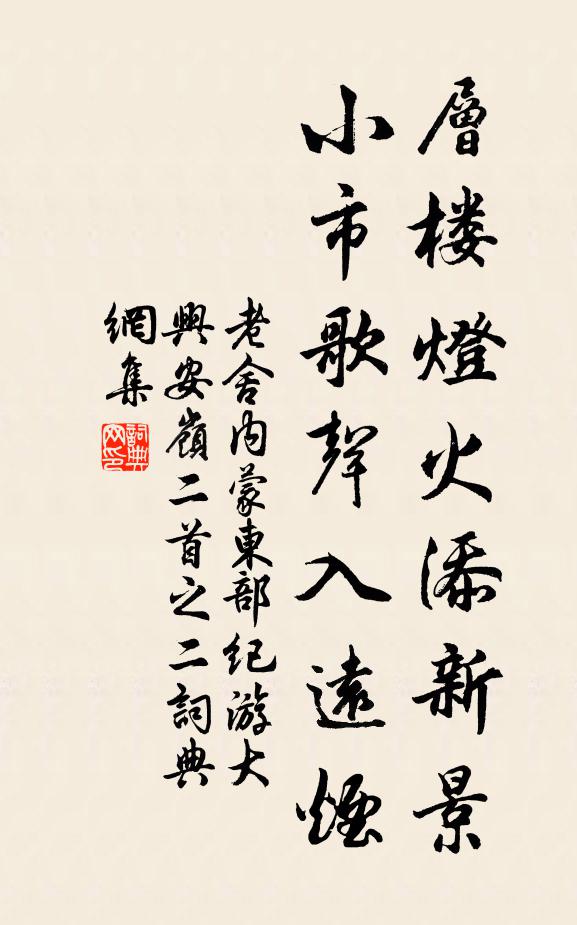 層楼燈火添新景
小市歌聲入遠煙
老舍內蒙東部紀游大
興安嶺二首之二詞典
網集
詞典
网印